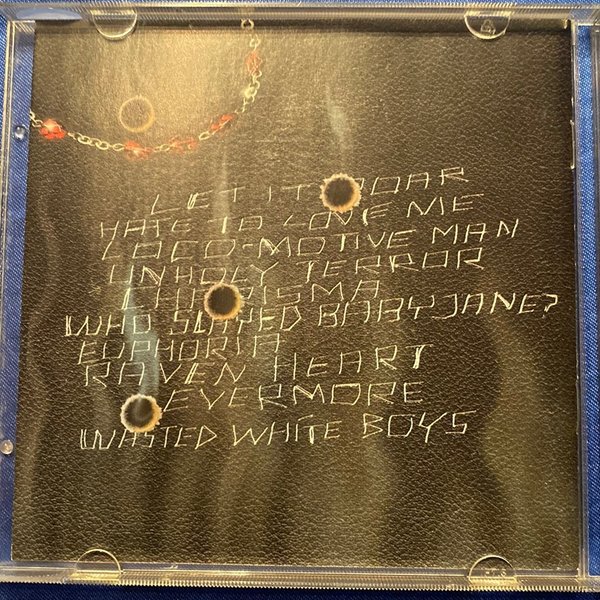 LET IT ROAR
HATE TO LOVE ME
LOCO-MOTIVE MAN
UNHOLY TERROR
CHARISMA
WHO SLAYED BABY JANE?
EUPHORIA
RAVEN HEART
EVERMORE
WASTED WHITE BOYS